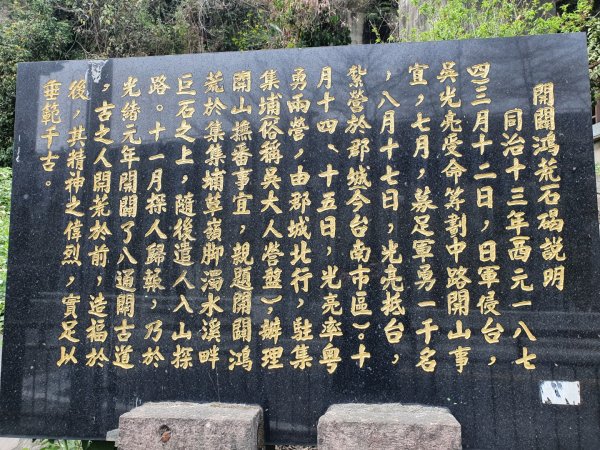 開闢鴻荒石碣説明
同治十三年西元一八七
四三月十二日，日軍侵台，
吳光亮受命籌劃中路開山事
宜，七月，募足軍勇一千名
，八月十七日，光亮抵台，
紮營於郡城今台南市區）。十
月十四、十五日，光亮率粵
勇兩營，由郡城北行，駐集
集埔俗稱吳大人營盤），辦理
開山撫番事宜，親題開闢鴻
荒於集集埔草嶺脚濁水溪畔
巨石之上，隨後遣人入山探
路。十一月探人歸報，乃於
光緒元年開闢了八通關古道
，古之人開荒於前，造福於
後，其精神之偉烈，實足以
垂範千古。